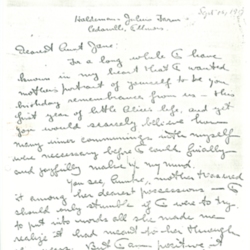 Haldeman-Julius Farm
Cedarville, Illinois.
Dearest Aunt Jane:
In a long while I have
known in my heart that I wanted
mother's portrait of yourself to be your
birthday remembrance from us - this
first year of little Alice's life, and yet
you would scarcely believe how
many inner communings with myself
were necessary before I could finally -
and joyfully make up my mind.
You see, Auntie, mother treasured
it among her dearest possessions - I
should only stumble if I were to try
to put into words all she made me
realize it had meant to her through
But I am positive